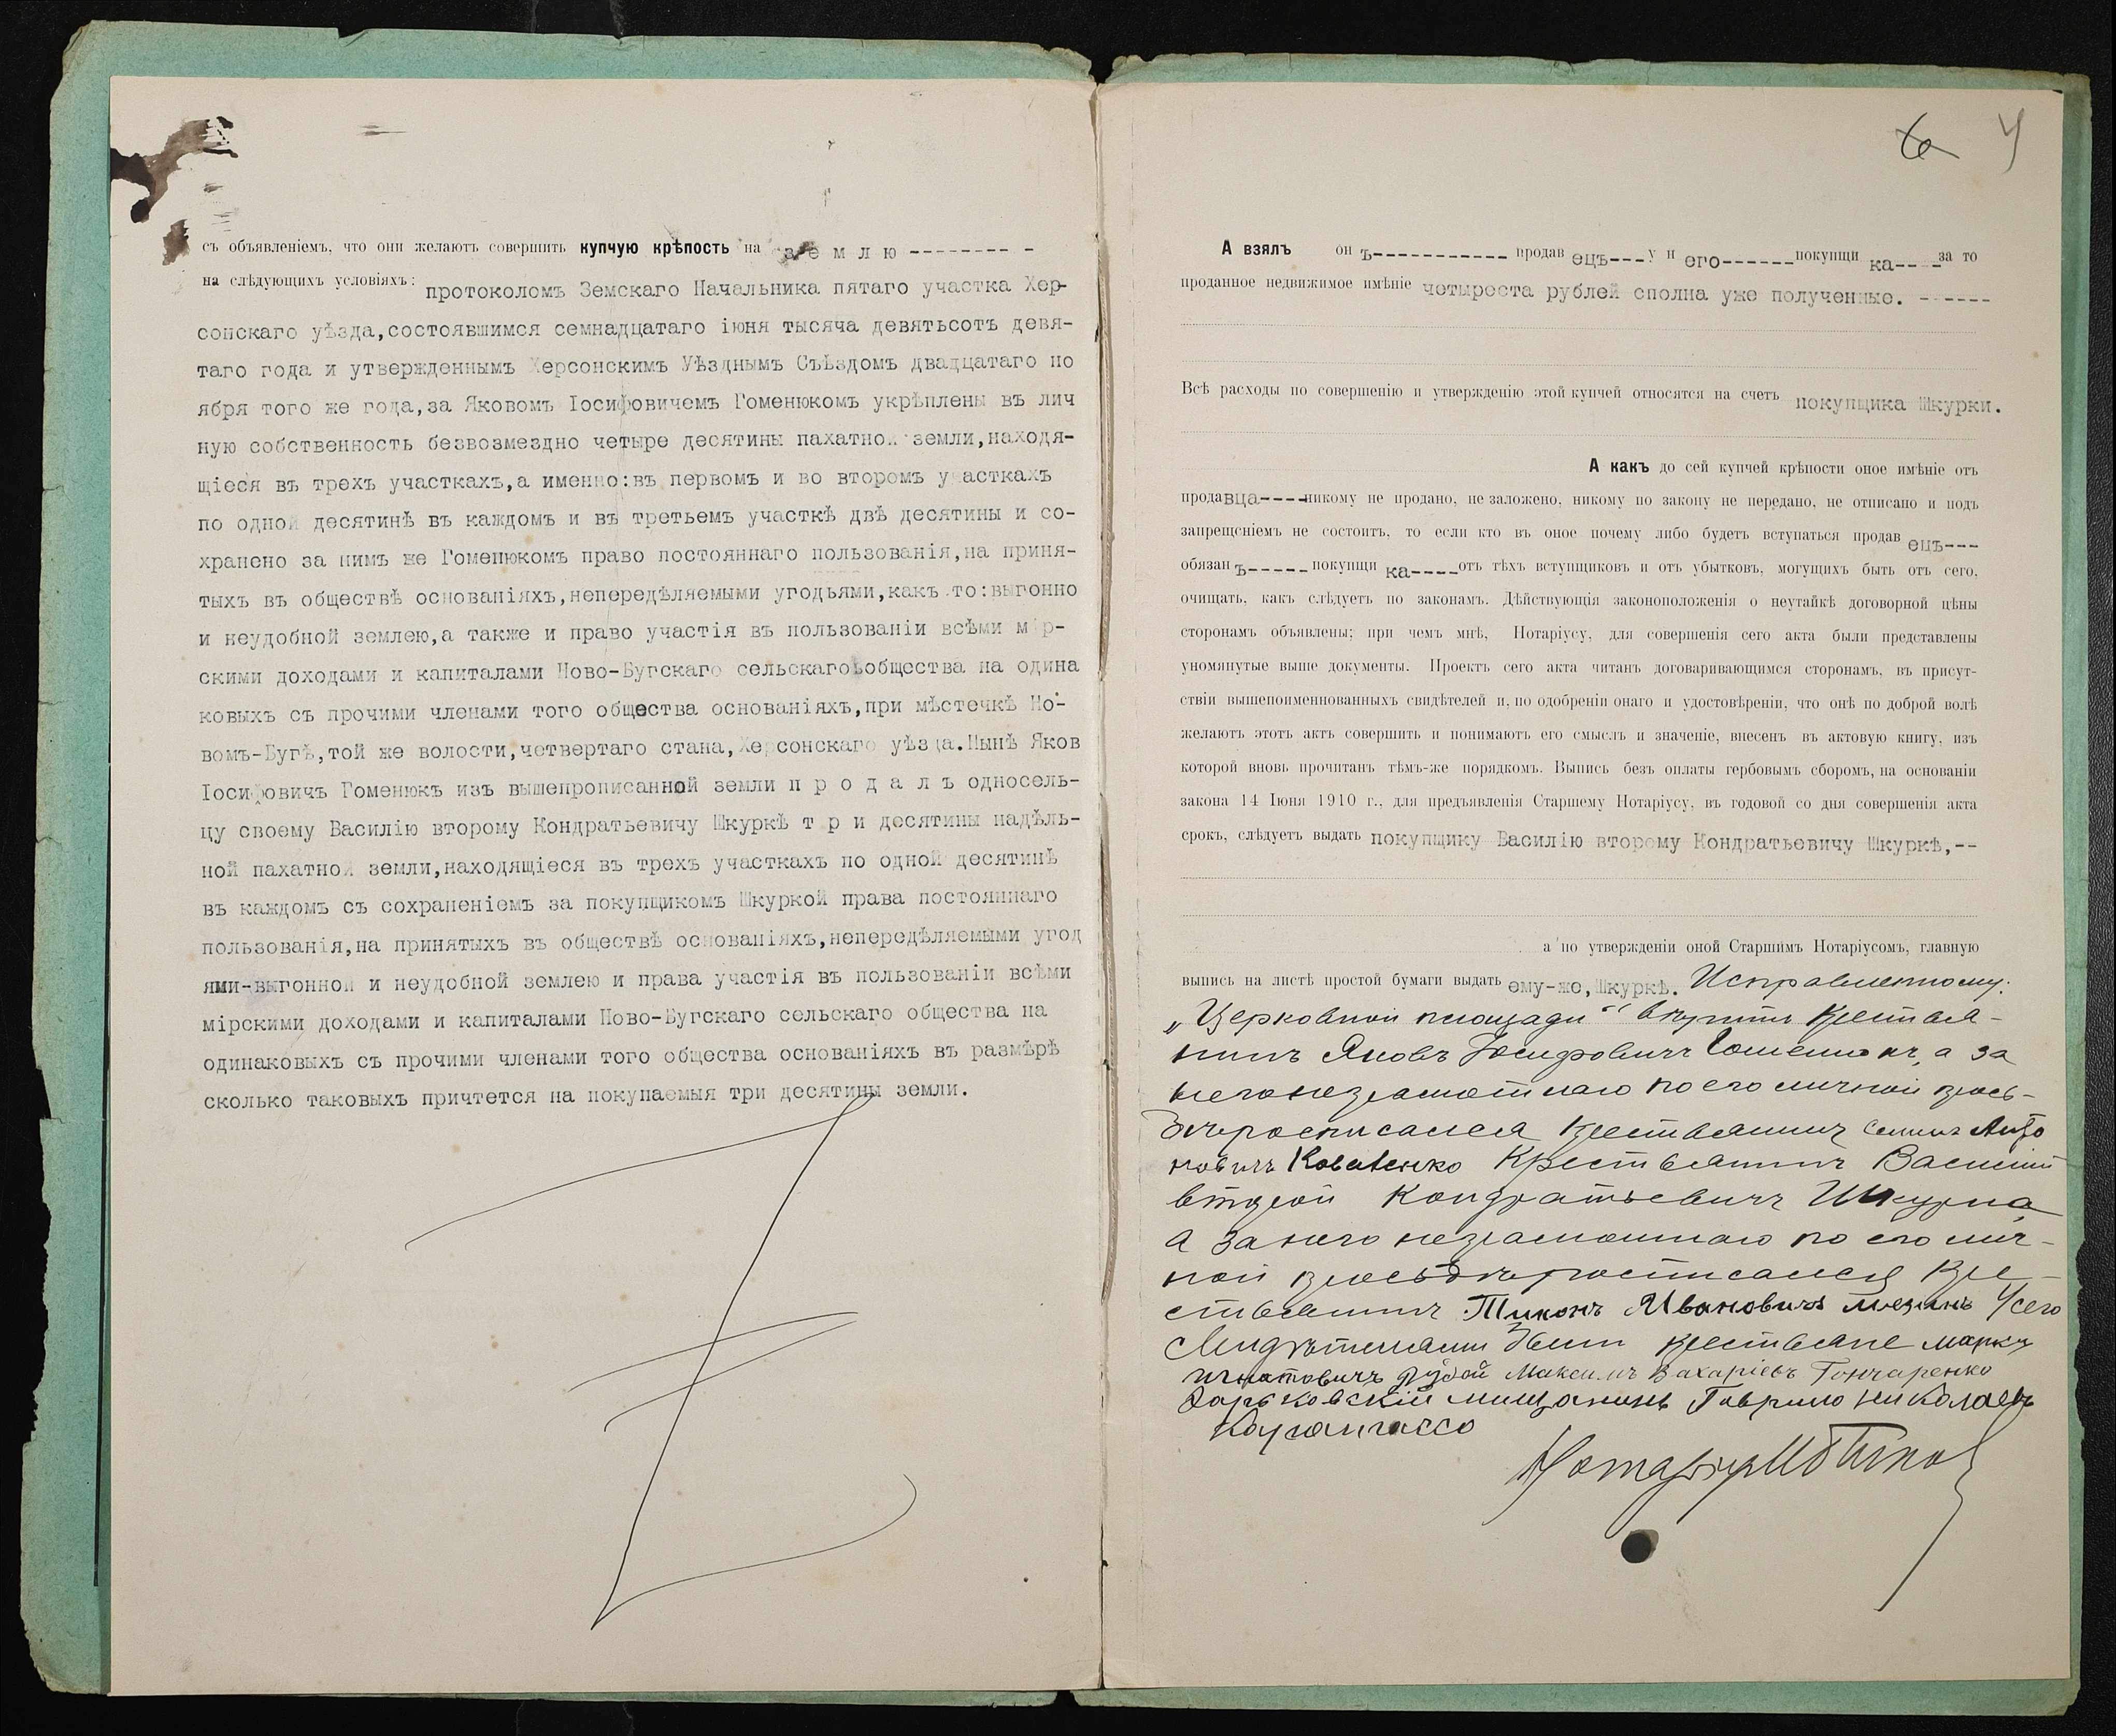 съ объявленіемъ, что они желаютъ совершить купчую крѣпость на з е м л ю -------- -
на слѣдующихъ условіяхъ: протоколомъ Земскаго Начальника пятаго участка Хер-
сонскаго уѣзда,состоявшимся семнадцатаго іюня тысяча девятьсотъ девя-
таго года и утвержденнымъ Херсонскимъ Уѣзднымъ Съѣздомъ двадцатаго но
ября того же года,за Яковомъ Іосифовичемъ Гоменюкомъ укрѣплены въ лич
ную собственность безвозмездно четыре десятины пахатной земли,находя-
щіеся въ трехъ участкахъ,а именно:въ первомъ и во второмъ участкахъ
по одной десятинѣ въ каждомъ и въ третьемъ участкѣ двѣ десятины и со-
хранено за нимъ же Гоменюкомъ право постояннаго пользованія,на приня-
тыхъ въ обществѣ основаніяхъ,непередѣляемыми угодьями,какъ то:выгонно
и неудобной землею,а также и право участія въ пользованіи всѣми мір-
скими доходами и капиталами Ново-Бугскаго сельскаго общества на одина
ковыхъ съ прочими членами того общества основаніяхъ,при мѣстечкѣ Но-
вомъ-Бугѣ,той же волости,четвертаго стана,Херсонскаго уѣзда.Нынѣ Яков
Іосифовичъ Гоменюкъ изъ вышепрописанной земли п р о д а л ъ односель-
цу своему Василію второму Кондратьевичу Шкуркѣ т р и десятины надѣль-
ной пахатной земли,находящіеся въ трехъ участкахъ по одной десятинѣ
въ каждомъ съ сохраненіемъ за покупщикомъ Шкуркой права постояннаго
пользованія,на принятыхъ въ обществѣ основаніяхъ,непередѣляемыми угод
ями-выгонной и неудобной землею и права участія въ пользованіи всѣми
мірскими доходами и капиталами Ново-Бугскаго сельскаго общества на
одинаковыхъ съ прочими членами того общества основаніяхъ въ размѣрѣ
сколько таковыхъ причтется на покупаемыя три десятины земли.
6 4
А взялъ он ъ----------- продав ецъ---у и его------покупщи ка----за то
проданное недвижимое имѣніе четыреста рублей сполна уже полученные. ------
Всѣ расходы по совершенію и утвержденію этой купчей относятся на счетъ покупщика Шкурки.
А какъ до сей купчей крѣпости оное имѣніе отъ
продавца----никому не продано, не заложено, никому по закону не передано, не отписано и подъ
запрещеніемъ не состоитъ, то если кто въ оное почему либо будетъ вступаться продав ецъ---
обязан ъ-----покупщи ка----отъ тѣхъ вступщиковъ и отъ убытковъ, могущихъ быть отъ сего,
очищать, какъ слѣдуетъ по законамъ. Дѣйствующія законоположенія о неутайкѣ договорной цѣны
сторонамъ объявлены; при чемъ мнѣ, Нотаріусу, для совершенія сего акта были представлены
упомянутые выше документы. Проектъ сего акта читанъ договаривающимся сторонамъ, въ присут-
ствіи вышепоименнованныхъ свидѣтелей и, по одобреніи онаго и удостовѣреніи, что онѣ по доброй волѣ
желаютъ этотъ актъ совершить и понимаютъ его смыслъ и значеніе, внесенъ въ актовую книгу, изъ
которой вновь прочитанъ тѣмъ-же порядкомъ. Выпись безъ оплаты гербовымъ сборомъ, на основаніи
закона 14 Іюня 1910 г., для предъявленія Старшему Нотаріусу, въ годовой со дня совершенія акта
срокъ, слѣдуетъ выдать покупщику Василію второму Кондратьевичу Шкуркѣ,--
а по утвержденіи оной Старшимъ Нотаріусомъ, главную
выпись на листѣ простой бумаги выдать ему-же,Шкуркѣ. Исправленному:
„Церковной площади" вѣрить Крестья-
нинъ Яковъ Іосифовичъ Гоменюкъ, а за
него неграмотнаго по его личной прось-
бѣ росписался крестьянинъ Семенъ Анто
новичъ Коваленко Крестьянинъ Василій
второй Кондратьевичъ Шкурка
а за него неграмотнаго по его лич-
ной просьбѣ росписался кре-
стьянинъ Тихонъ Ивановичъ У сего
Свидѣтелями были крестьяне Марко
Игнатовичъ Максимъ Захаріевъ Гончаренко
Харьковскій мищанинъ Гаврило Николаевъ
Нотаріусъ